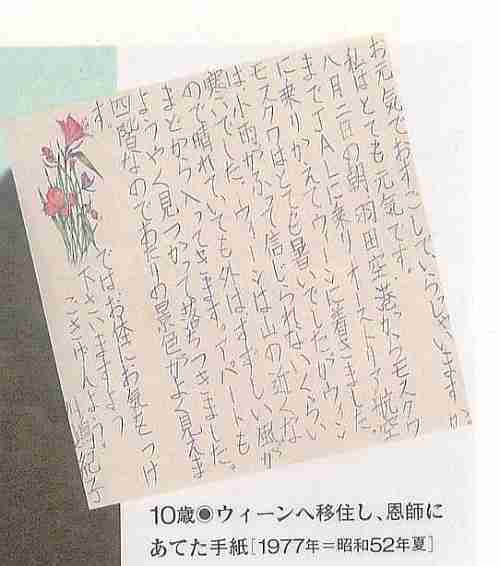 お元気でおすごしでいらっしゃいますか。
私はとても元気です。
八月二日の朝、羽田空港からモスクワ
までJALに乗り、オーストリア航空
に乗りかえてウィーンに着きました。
モスクワはとても暑いでしたがウィーン
は小雨がふって信じられないくらい
寒いでした。ウィーンは山の近くな
ので晴れていても外はすずしい風が
まどから入ってきます。アパートも
ようやく見つかって落ちつきました。
四階なのであたりの景色がよく見えま
す。
ではお体にお気をつけ
下さいますよう
ごきげんよう。川嶋紀子
10歳◉ウィーンへ移住し、恩師に
あてた手紙[1977年=昭和52年夏]